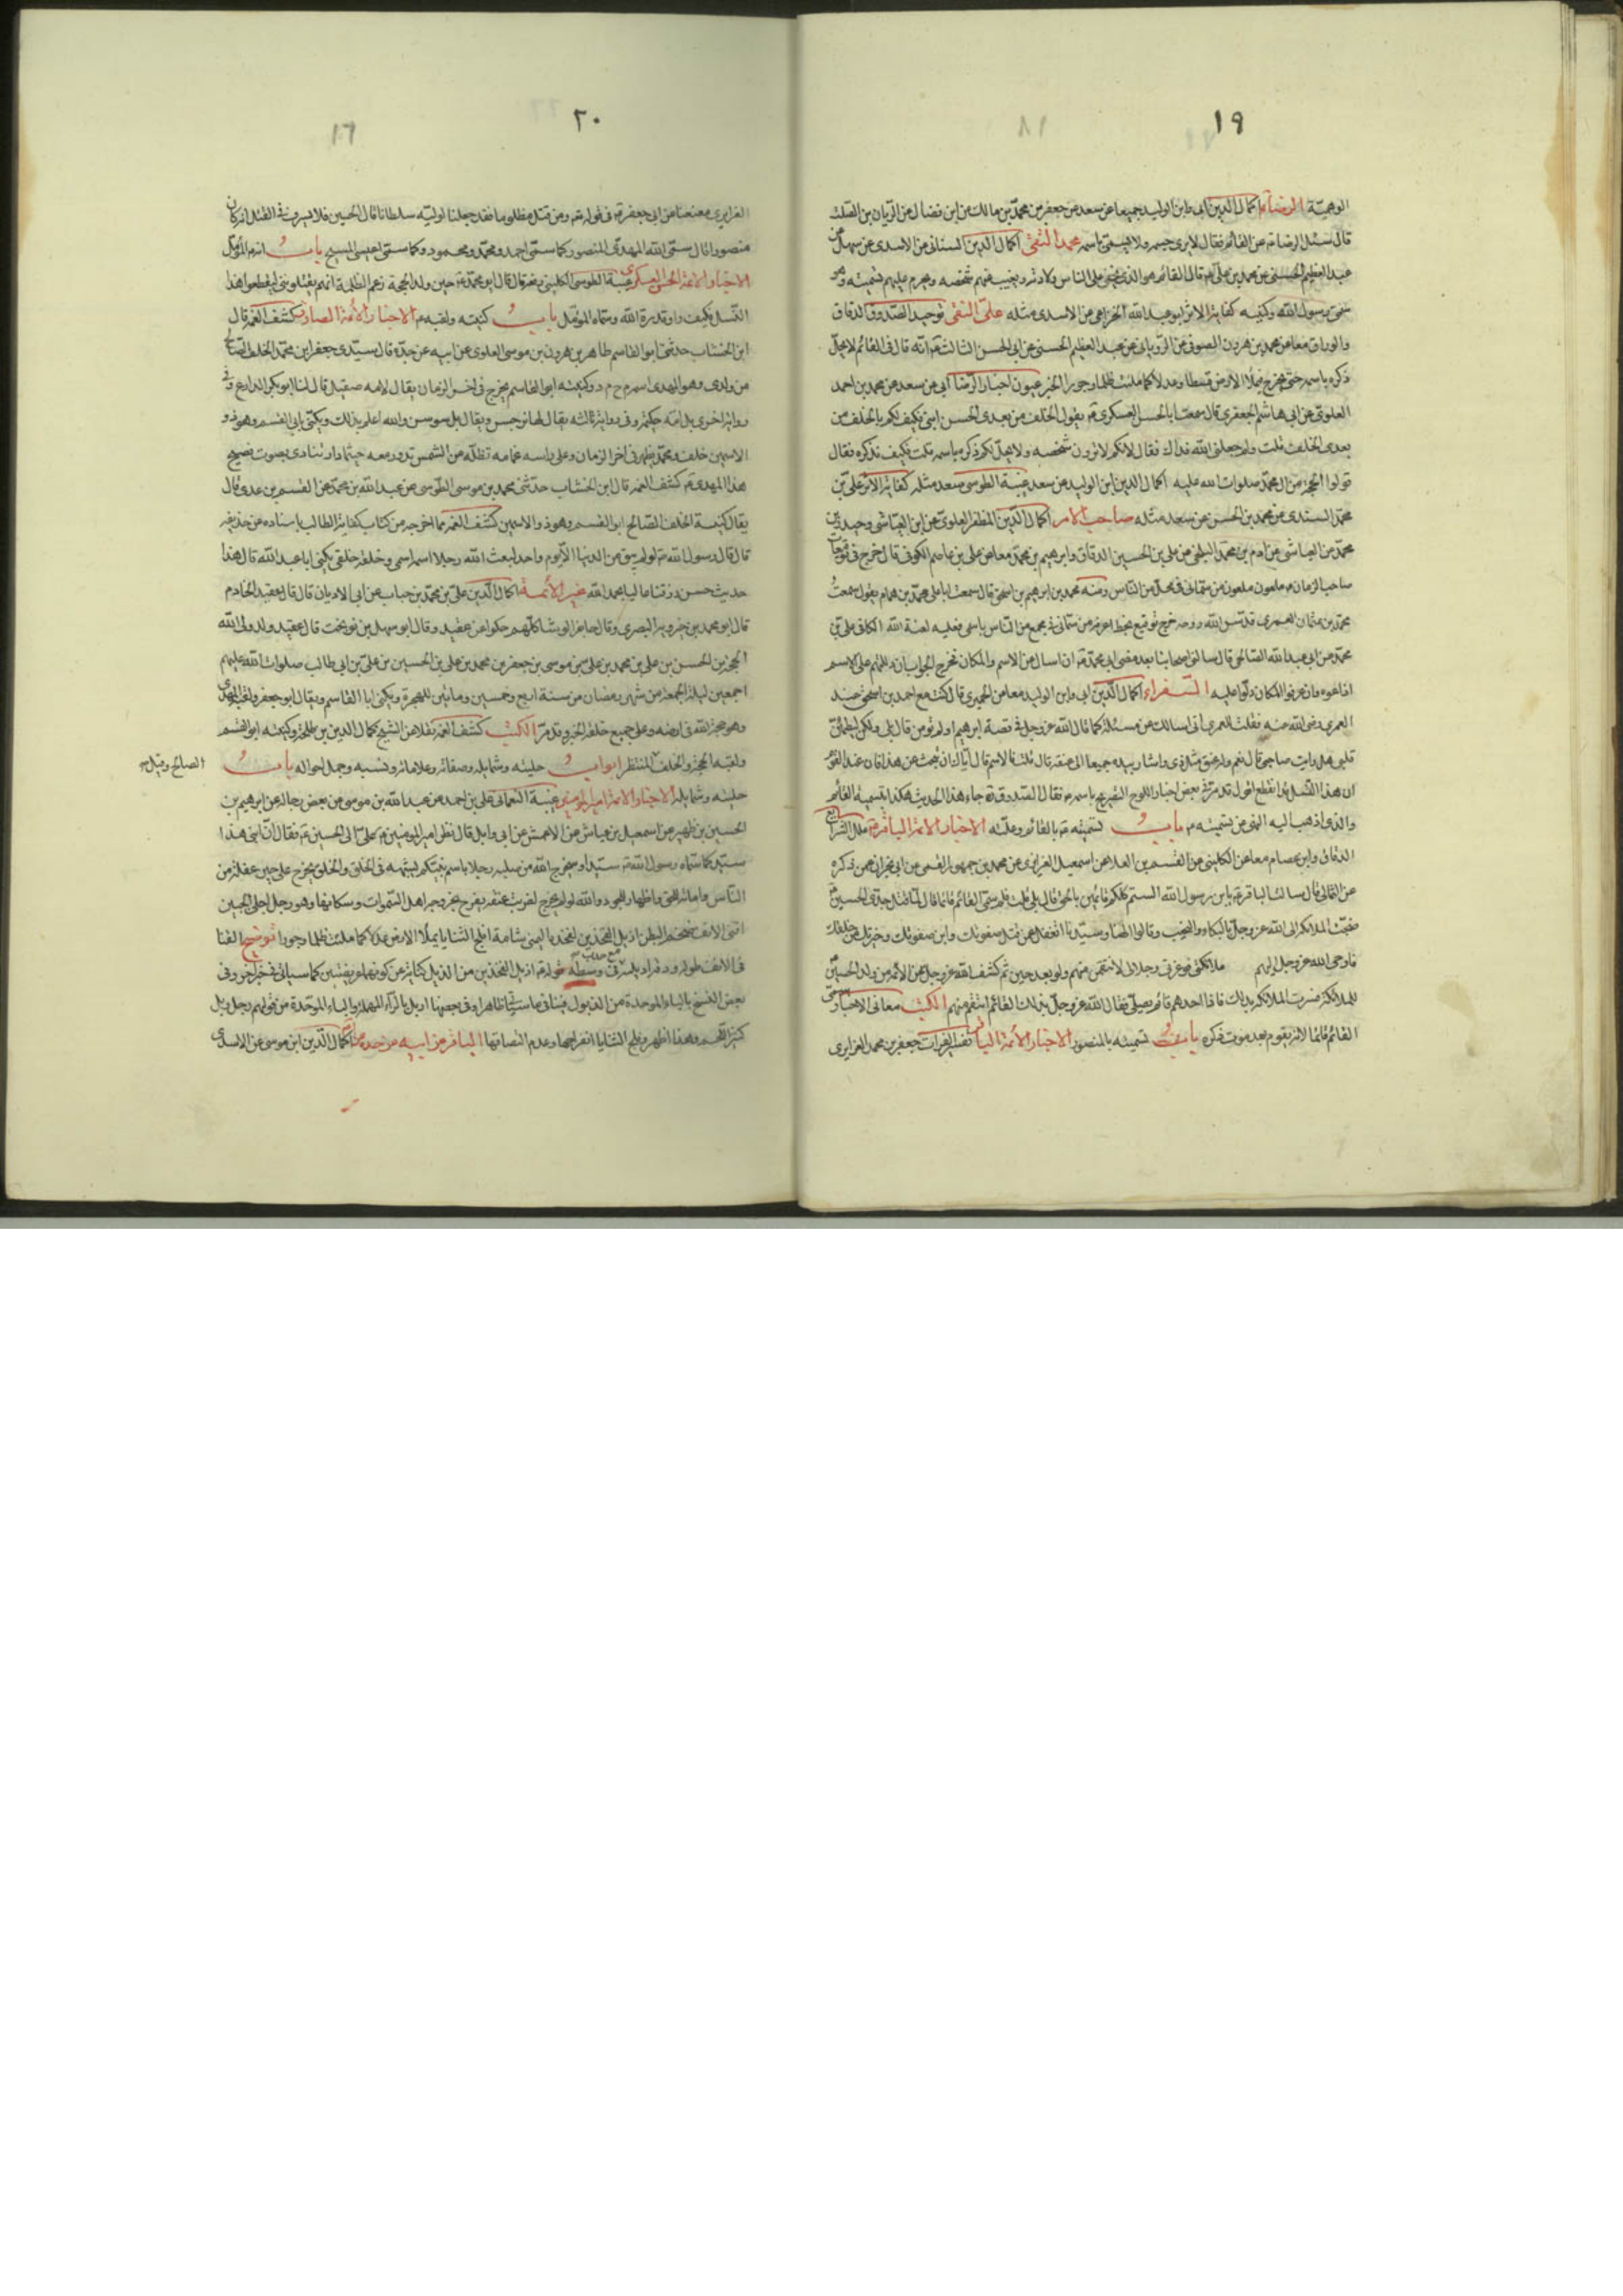 ١٩
الرضا ع اكمال الدين ابي وابن الوليد جميعا عن سعد عن جعفر بن محمد بن مالك عن ابن فضال عن الريان بن الصلت
قال سئل الرضا ع عن القائم فقال لا يرى جسمه ولا يسمى باسمه محمد التقي اكمال الدين السناني عن الاسدي عن سهل عن
عبد العظيم الحسني عن محمد بن علي ع قال القائم هو الذي يخفى على الناس ولادته ويغيب عنهم شخصه ويحرم عليهم تسميته وهو
سمي رسول الله وكنيه كفاية الاثر ابو عبد الله الخزاعي عن الاسدي مثله علي النقي توحيد الصدوق الدقاق
والوراق معا عن محمد بن هرون الصوفي عن الروياني عن عبد العظيم الحسني عن ابي الحسن الثالث ع انه قال في القائم لا يحل
ذكره باسمه حتى يخرج فيملأ الارض قسطا وعدلا كما ملئت ظلما وجورا الخبر عيون اخبار الرضا ابي عن سعد عن محمد بن احمد
العلوي عن ابي هاشم الجعفري قال سمعت ابا الحسن العسكري ع يقول الخلف من بعدي الحسن ابني فكيف لكم بالخلف من
بعد الخلف قلت ولم جعلني الله فداك فقال لانكم لا ترون شخصه ولا يحل لكم ذكره باسمه قلت فكيف نذكره فقال
قولوا الحجة من ال محمد صلوات الله عليه اكمال الدين ابن الوليد عن سعد غيبة الطوسي سعد مثله كفاية الاثر علي بن
محمد السندي عن محمد بن الحسن عن سعد مثله صاحب الامر اكمال الدين المظفر العلوي عن ابن العياشي وحيدر بن
محمد عن العياشي عن ادم بن محمد البلخي عن علي بن الحسين الدقاق وابرهيم بن محمد معا عن علي بن عاصم الكوفي قال خرج في توقيعات
صاحب الزمان ع ملعون ملعون من سماني في محفل من الناس ومنه محمد بن ابرهيم بن اسحق قال سمعت ابا علي محمد بن همام يقول سمعت
محمد بن عثمان العمري قدس الله روحه يقول خرج توقيع بخط اعرفه من سماني في مجمع من الناس باسمي فعليه لعنة الله الكافي علي بن
محمد عن ابي عبد الله الصالحي قال سألني اصحابنا بعد مضي ابي محمد ع ان اسأل عن الاسم والمكان فخرج الجواب ان دللتهم على الاسم
اذاعوه وان عرفوا المكان دلوا عليه السفراء اكمال الدين ابي وابن الوليد معا عن الحميري قال كنت مع احمد بن اسحق عند
العمري رضي الله عنه فقلت للعمري اني اسألك عن مسئلة كما قال الله عز وجل في قصة ابرهيم اولم تؤمن قال بلى ولكن ليطمئن
قلبي هل رايت صاحبي قال نعم وله عنق مثل ذي واشار بيده جميعا الى عنقه قال قلت فالاسم قال اياك ان تبحث عن هذا فان عند القوم
ان هذا النسل قد انقطع اقول قد مر في بعض اخبار اللوح التصريح باسمه ع فقال الصدوق ره جاء هذا الحديث هكذا بتسمية القائم
والذي اذهب اليه النهي عن تسميته ع باب تسميته ع بالقائم وعلته الاخبار الائمة الباقر ع علل الشرايع
الدقاق وابن عصام معا عن الكليني عن القسم بن العلا عن اسمعيل الفزاري عن محمد بن جمهور القمي عن ابن ابي نجران عمن ذكره
عن الثمالي قال سألت الباقر ع يابن رسول الله الستم كلكم قائمين بالحق قال بلى قلت فلم سمي القائم قائما قال لما قتل جدي الحسين ع
ضجت الملائكة الى الله عز وجل بالبكاء والنحيب وقالوا الهنا وسيدنا اتغفل عمن قتل صفوتك وابن صفوتك وخيرتك من خلقك
فاوحى الله عز وجل اليهم ملائكتي فوعزتي وجلالي لانتقمن منهم ولو بعد حين ثم كشف الله عز وجل عن الائمة من ولد الحسين ع
للملائكة فسرت الملائكة بذلك فاذا احدهم قائم يصلي فقال الله عز وجل بذلك القائم انتقم منهم الكتب معاني الاخبار سمي
القائم قائما لانه يقوم بعد موت ذكره باب تسميته بالمنصور الاخبار الائمة الباقر تفسير الفرات جعفر بن محمد الفزاري
٢٠
١٦
الفزاري معنعنا عن ابي جعفر ع في قوله تع ومن قتل مظلوما فقد جعلنا لوليه سلطانا قال الحسين فلا يسرف في القتل انه كان
منصورا قال سمى الله المهدي المنصور كما سمى احمد ومحمد ومحمود وكما سمى عيسى المسيح باب انه ع المؤمل
الاخبار الائمة الحسن العسكري غيبة الطوسي الكليني رفعه قال قال ابو محمد ع حين ولد الحجة زعم الظلمة انهم يقتلونني ليقطعوا هذا
النسل فكيف راوا قدرة الله وسماه المؤمل باب كنيته ولقبه ع الاخبار الائمة الصادق كشف الغمة قال
ابن الخشاب حدثني ابو القاسم طاهر بن هرون بن موسى العلوي عن ابيه عن جده قال سيدي جعفر ابن محمد الخلف الصالح
من ولدي وهو المهدي اسمه م ح م د وكنيته ابو القاسم يخرج في اخر الزمان يقال لامه صقيل قال لنا ابو بكر الدارع وفي
رواية اخرى بل امه حكيمة وفي رواية ثالثة يقال لها نرجس ويقال بل سوسن والله اعلم بذلك ويكنى بابي القسم وهو ذو
الاسمين خلف ومحمد يظهر في اخر الزمان وعلى راسه غمامة تظله من الشمس تدور معه حيثما دار تنادي بصوت فصيح
هذا المهدي ع كشف الغمة قال ابن الخشاب حدثني محمد بن موسى الطوسي عن عبد الله بن محمد عن القسم بن عدي قال
يقال كنية الخلف الصالح ابو القسم وهو ذو الاسمين كشف الغمة مما اخرجه من كتاب كفاية الطالب باسناده عن حذيفة
قال قال رسول الله ص لو لم يبق من الدنيا الا يوم واحد لبعث الله رجلا اسمه اسمي وخلقه خلقي يكنى ابا عبد الله قال هذا
حديث حسن رزقناه عاليا بحمد الله غير الائمة اكمال الدين علي بن محمد بن حباب عن ابي الاديان قال قال عقيد الخادم
قال ابو محمد بن خيرويه البصري وقال حاجز الوشا كلهم حكوا عن عقيد وقال ابو سهل بن نوبخت قال عقيد ولد ولي الله
الحجة بن الحسن بن علي بن محمد بن علي بن موسى بن جعفر بن محمد بن علي بن الحسين بن علي بن ابي طالب صلوات الله عليهم
اجمعين ليلة الجمعة من شهر رمضان من سنة اربع وخمسين ومأتين للهجرة ويكنى ابا القاسم ويقال ابو جعفر ولقبه المهدي
وهو حجة الله في ارضه وعلى جميع خلقه الخبر وقد مر الكتب كشف الغمة نقلا عن الشيخ كمال الدين بن طلحة وكنيته ابو القسم
ولقبه الحجة والخلف المنتظر ابواب حليته وشمايله وصفاته وعلاماته ونسبه وجمل احواله باب
الصالح وقيل
حليته وشمايله الاخبار الائمة امير المؤمنين غيبة النعماني علي بن احمد عن عبد الله بن موسى عن بعض رجاله عن ابرهيم بن
الحسين بن ظهير عن اسمعيل بن عياش عن الاعمش عن ابي وايل قال نظر امير المؤمنين ع علي الى الحسين ع فقال ان ابني هذا
سيد كما سماه رسول الله ص سيدا وسيخرج الله من صلبه رجلا باسم نبيكم يشبهه في الخلق والخلق يخرج على حين غفلة من
الناس واماتة للحق واظهار للجور والله لو لم يخرج لضربت عنقه يفرح بخروجه اهل السموات وسكانها وهو رجل اجلى الجبين
اقنى الانف ضخم البطن ازيل الفخذين بفخذه اليمنى شامة افلج الثنايا يملأ الارض عدلا كما ملئت ظلما وجورا توضيح القنا
في الانف طوله ودقة ارنبته مع حدب في وسطه قوله ع ازيل الفخذين من الزيل كناية عن كونهما عريضتين كما سياتي في خبر اخر وفي
بعض النسخ بالباء الموحدة من الذبول فينافي ما سياتي ظاهرا وفي بعضها اربل بالراء المهملة والباء الموحدة من قولهم رجل ربل
كثير اللحم وهذا اظهر وفلج الثنايا انفراجها وعدم التصاقها الباقر عن ابيه عن جده اكمال الدين ابن موسى عن الاسدي